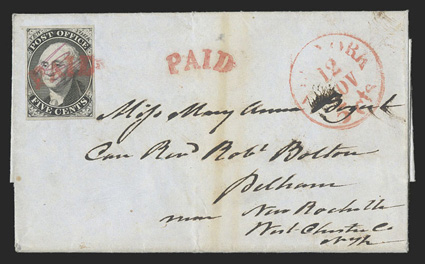 POST OFFICE
FIVE CENTS
PAID
PAID
NEW YORK
12
NOV
Miss Mary Anna
Care Revd Robt Bolton
Pelham
near New Rochelle
West Chester Co